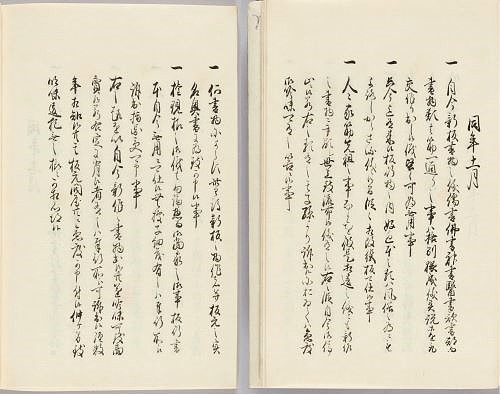 同年十一月
一 自今新板書物之儀儒書佛書神書醫書歌書都而
書物類其筋一通之事ハ格別猥成儀異説等を取
交作り出し候儀堅可為無用事
一 只今迄有来候板行物之内好色本之類ハ風俗之為にも
よろしからさる儀ニ候間段々相改絶板可仕候事
一 人々家筋先祖之事なとを彼是相違之儀とも新作
之書物ニ書顕世上致流布候儀有之候右段自今御停
止ニ候若右之類有之其子孫より訴出候におゐてハ急度
御吟味可有之筈ニ候事
一 何書物ニよらす此以後新板之物作者并板元之実
名奥書ニ為致可申候事
一 権現様之御儀は勿論惣而御当家之御事板行書
本自今無用ニ可仕候無拠子細も有之ハ奉行所江
訴出指図受可申事
右之趣を以自今新作之書物出候共遂吟味可致商
賣候若右定ニ背候者有之ハ奉行所江可訴出候経数
年相知候共其板元問屋共ニ急度可申付候仲ヶ間致
吟味違犯無之様ニ可相心得候